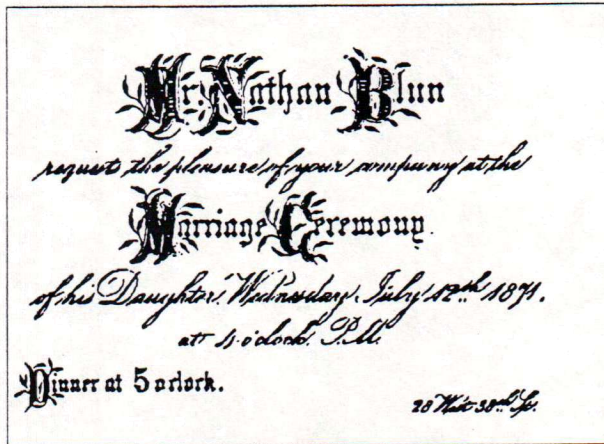 Mr. Nathan Blun
request the pleasure of your company at the
Marriage Ceremony
of his Daughter, Wednesday, July 12th 1871.
at 4 o'clock. P.M.
Dinner at 5 oclock.
28 West 38th St.